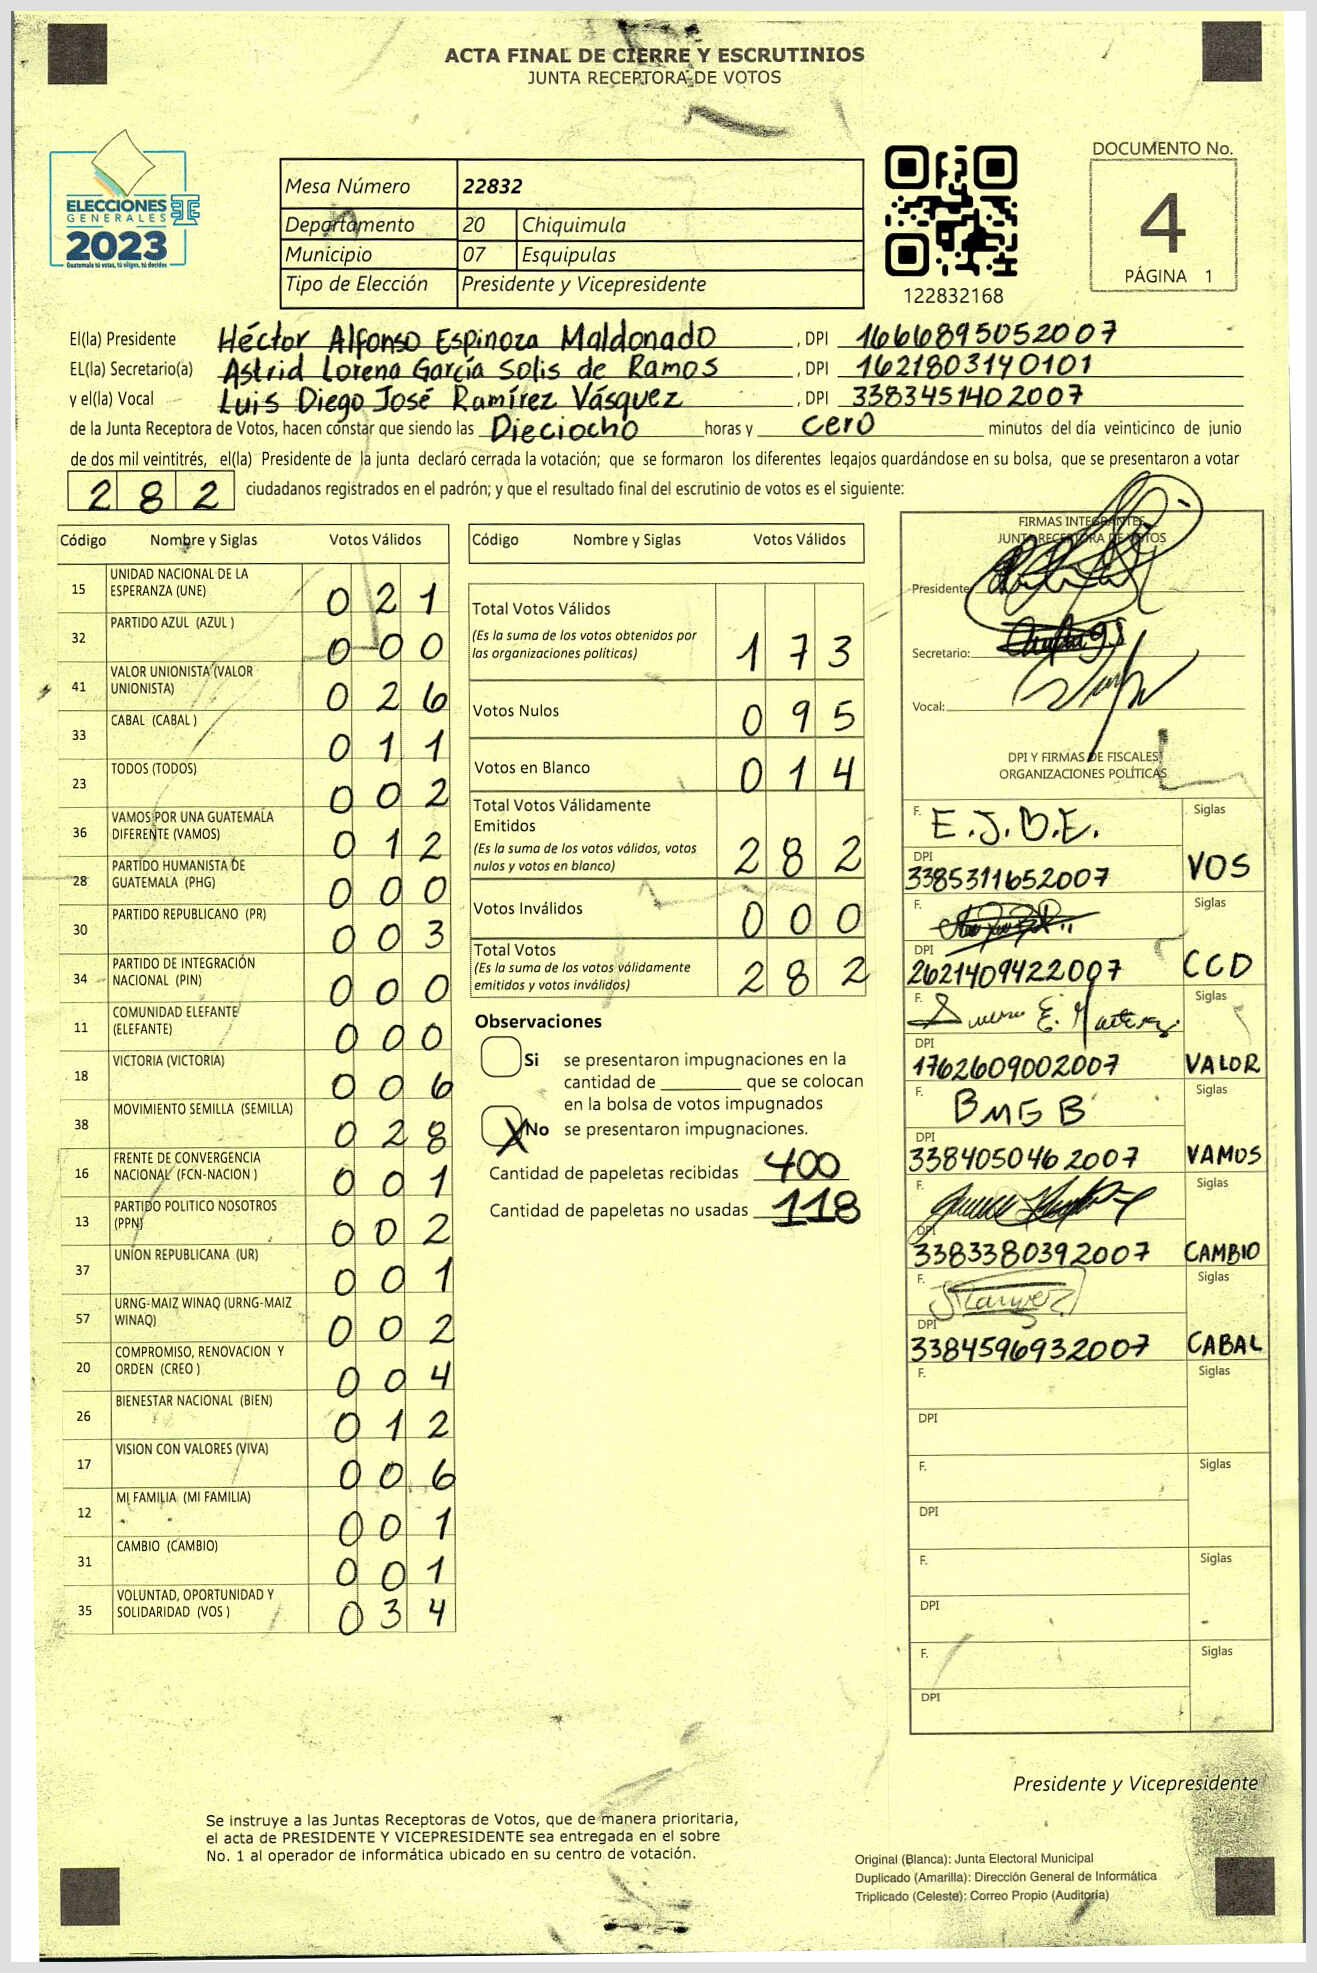 ACTA FINAL DE CIERRE Y ESCRUTINIOS
JUNTA RECEPTORA DE VOTOS
ELECCIONES
GENERALES
2023
Guatemala tú votas, tú eliges, tú decides
Mesa Número 22832
Departamento 20 Chiquimula
Municipio 07 Esquipulas
Tipo de Elección Presidente y Vicepresidente
122832168
DOCUMENTO No.
4
PÁGINA 1
El(la) Presidente Héctor Alfonso Espinoza Maldonado , DPI 1666895052007
EL(la) Secretario(a) Astrid Lorena García Solis de Ramos , DPI 1621803140101
y el(la) Vocal Luis Diego José Ramírez Vásquez , DPI 3383451402007
de la Junta Receptora de Votos, hacen constar que siendo las Dieciocho horas y cero minutos del día veinticinco de junio
de dos mil veintitrés, el(la) Presidente de la junta declaró cerrada la votación; que se formaron los diferentes legajos guardándose en su bolsa, que se presentaron a votar
282 ciudadanos registrados en el padrón; y que el resultado final del escrutinio de votos es el siguiente:
Código Nombre y Siglas Votos Válidos
15 UNIDAD NACIONAL DE LA ESPERANZA (UNE) 021
32 PARTIDO AZUL (AZUL ) 000
41 VALOR UNIONISTA (VALOR UNIONISTA) 026
33 CABAL (CABAL ) 011
23 TODOS (TODOS) 002
36 VAMOS POR UNA GUATEMALA DIFERENTE (VAMOS) 012
28 PARTIDO HUMANISTA DE GUATEMALA (PHG) 000
30 PARTIDO REPUBLICANO (PR) 003
34 PARTIDO DE INTEGRACIÓN NACIONAL (PIN) 000
11 COMUNIDAD ELEFANTE (ELEFANTE) 000
18 VICTORIA (VICTORIA) 006
38 MOVIMIENTO SEMILLA (SEMILLA) 028
16 FRENTE DE CONVERGENCIA NACIONAL (FCN-NACION ) 001
13 PARTIDO POLITICO NOSOTROS (PPN) 002
37 UNION REPUBLICANA (UR) 001
57 URNG-MAIZ WINAQ (URNG-MAIZ WINAQ) 002
20 COMPROMISO, RENOVACION Y ORDEN (CREO ) 004
26 BIENESTAR NACIONAL (BIEN) 012
17 VISION CON VALORES (VIVA) 006
12 MI FAMILIA (MI FAMILIA) 001
31 CAMBIO (CAMBIO) 001
35 VOLUNTAD, OPORTUNIDAD Y SOLIDARIDAD (VOS ) 034
Código Nombre y Siglas Votos Válidos
Total Votos Válidos 173
(Es la suma de los votos obtenidos por
las organizaciones políticas)
Votos Nulos 095
Votos en Blanco 014
Total Votos Válidamente
Emitidos 282
(Es la suma de los votos válidos, votos
nulos y votos en blanco)
Votos Inválidos 000
Total Votos 282
(Es la suma de los votos válidamente
emitidos y votos inválidos)
Observaciones
Si se presentaron impugnaciones en la
cantidad de ________ que se colocan
en la bolsa de votos impugnados
X No se presentaron impugnaciones.
Cantidad de papeletas recibidas 400
Cantidad de papeletas no usadas 118
FIRMAS INTEGRANTES
JUNTA RECEPTORA DE VOTOS
Presidente:
Secretario:
Vocal:
DPI Y FIRMAS DE FISCALES
ORGANIZACIONES POLÍTICAS
F. E.J.D.E. Siglas
DPI 3385311652007 VOS
F. Siglas
DPI 2621409422007 CCD
F. Siglas
DPI 1762609002007 VALOR
F. BMGB Siglas
DPI 3384050462007 VAMOS
F. Siglas
DPI 3383380392007 CAMBIO
F. Siglas
DPI 3384596932007 CABAL
F. Siglas
DPI
F. Siglas
DPI
F. Siglas
DPI
F. Siglas
DPI
Presidente y Vicepresidente
Se instruye a las Juntas Receptoras de Votos, que de manera prioritaria,
el acta de PRESIDENTE Y VICEPRESIDENTE sea entregada en el sobre
No. 1 al operador de informática ubicado en su centro de votación.
Original (Blanca): Junta Electoral Municipal
Duplicado (Amarilla): Dirección General de Informática
Triplicado (Celeste): Correo Propio (Auditoría)